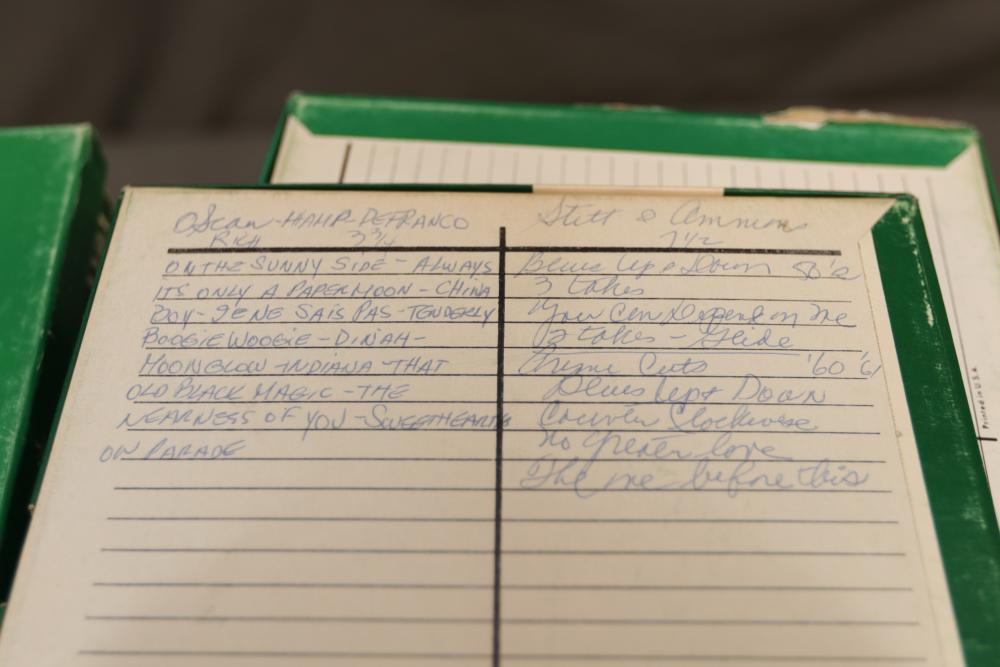 OSCAR-HAMP-DEFRANCO
RICH 3 3/4
ON THE SUNNY SIDE - ALWAYS
ITS ONLY A PAPERMOON - CHINA
BOY - JE NE SAIS PAS - TENDERLY
BOOGIE WOOGIE - DINAH -
MOONGLOW - INDIANA - THAT
OLD BLACK MAGIC - THE
NEARNESS OF YOU - SWEETHEARTS
ON PARADE
Stitt & Ammons
7 1/2
Blues Up & Down 50's
3 takes
You Can Depend on Me
2 takes - Glide
Prime Cuts '60 '61
Blues Up & Down
Counter Clockwise
No Greater Love
The one before this
Printed in U.S.A.